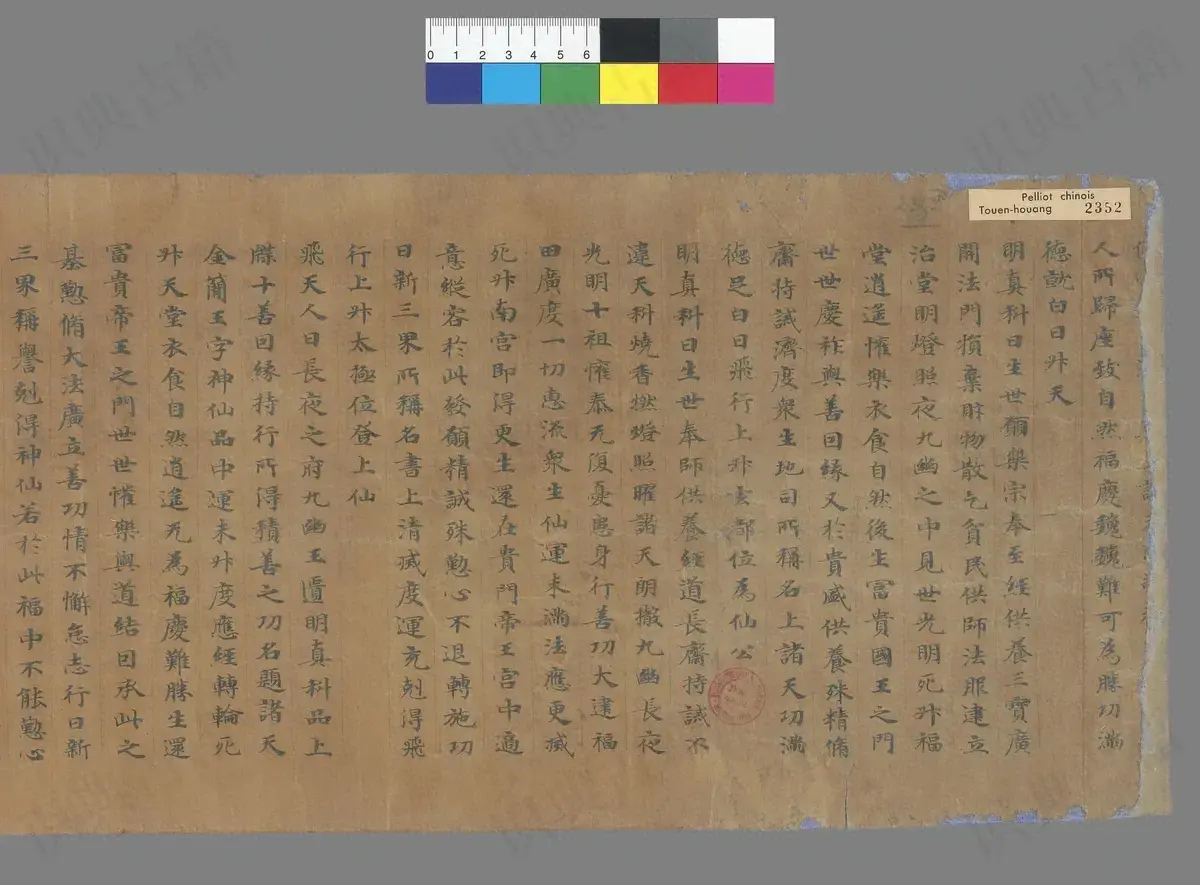 Pelliot chinois
Touen-houang 2352
0 1 2 3 4 5 6
人所歸座致自然福慶巍巍難可為勝功滿
德就白日升天
明真科曰生世願樂宗奉至經供養三寶廣
開法門損棄財物散乞貧民供師法服建立
治堂明燈照夜九幽之中見世光明死升福
堂逍遙懽樂衣食自然後生富貴國王之門
世世慶祚與善因緣又於貴盛供養殊精脩
齋持誡濟度衆生地司所稱名上諸天功滿
德足白日飛行上升玄都位為仙公
明真科曰生世奉師供養經道長齋持誡不
違天科燒香燃燈照曜諸天朗撤九幽長夜
光明十祖懽泰无復憂患身行善功大建福
田廣度一切惠流衆生仙運未滿法應更滅
死升南宮即得更生還在貴門帝王宮中適
意縱容於此發願精誠殊懃心不退轉施功
日新三界所稱名書上清滅度運充剋得飛
行上升太極位登上仙
飛天人曰長夜之府九幽玉匱明真科品上
牒十善因緣持行所得積善之功名題諸天
金蘭玉字神仙品中運未升度應經轉輪死
升天堂衣食自然逍遙无為福慶難勝生還
富貴帝王之門世世懽樂與道結因承此之
基懃脩大法廣立善功情不懈怠志行日新
三界稱譽剋得神仙若於此福中不能懃心